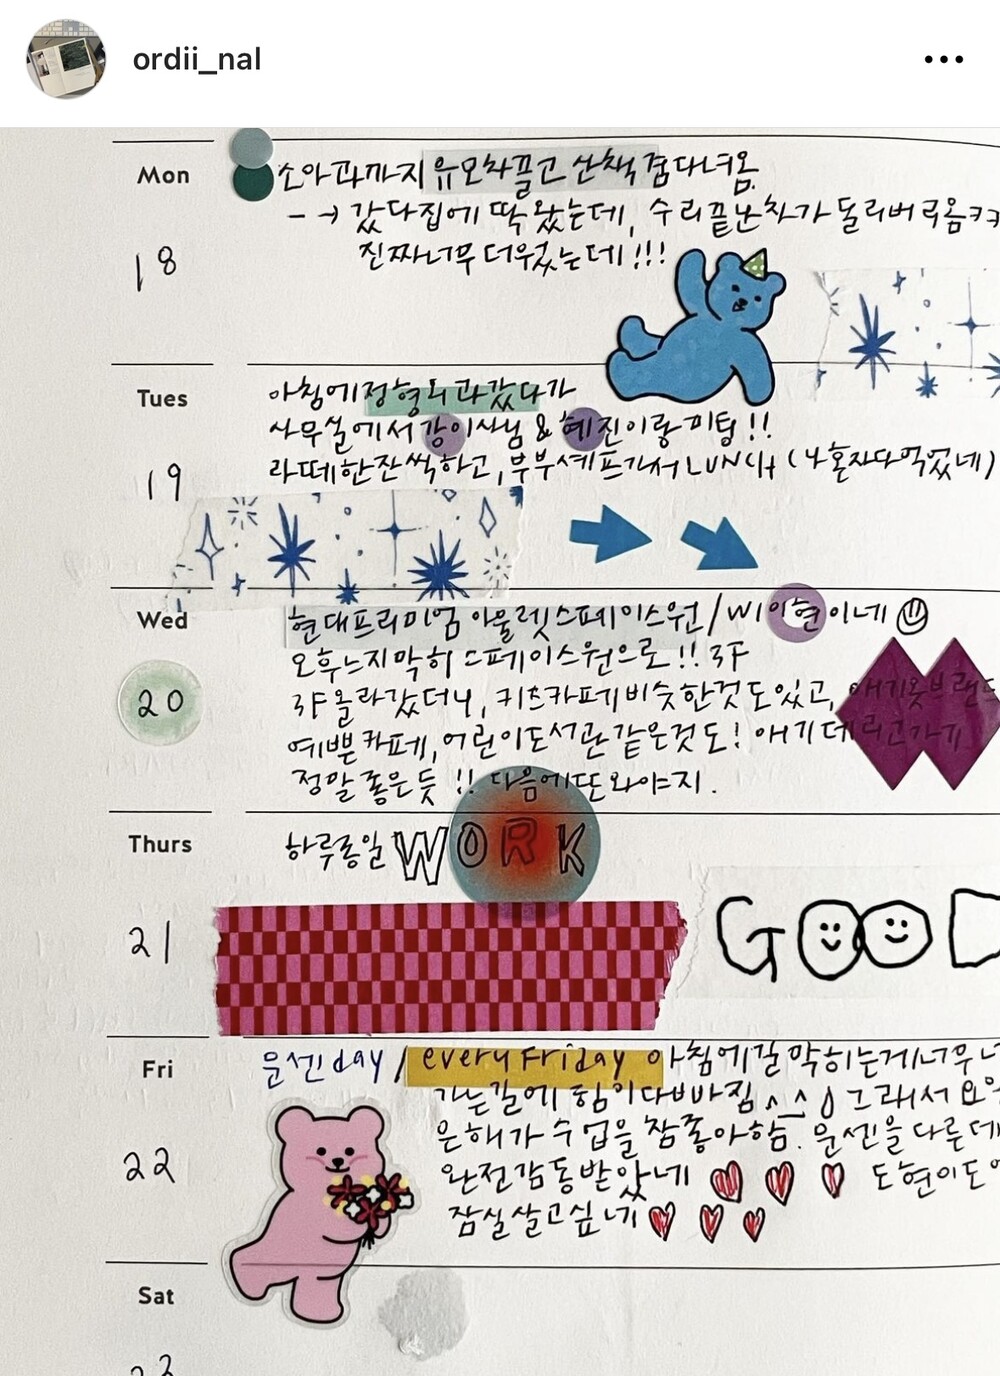 ordii_nal
Mon
소아과까지 유모차끌고 산책 겸 다녀옴.
--> 갔다 집에 딱 왔는데, 수리끝난차가 돌려버려옴ㅋㅋ
진짜너무 더웠는데!!!
18
Tues
아침에 정형외과 갔다가
사무실에서 강이사님 & 혜진이랑 미팅!!
라떼한잔씩하고, 부부셰프가서 LUNCH (나혼자다먹었네)
19
Wed
현대프리미엄 아울렛스페이스원 / W 이현이네
오후느지막히 스페이스원으로!! 3F
3F올라갔더니, 키즈카페비슷한것도있고, 애기옷브랜드
예쁜카페, 어린이도서관같은것도! 애기데리고가기
정말좋은듯!! 다음에또와야지.
20
Thurs
하루종일 WORK
21
GOOD
Fri
문센day / every Friday 아침에길막히는게너무
가는길에 힘이다빠짐^_^ 그래서
은해가 수업을 참좋아함. 문센을 다른데
완전감동받았네 도현이도
잠실살고싶네
22
Sat
23